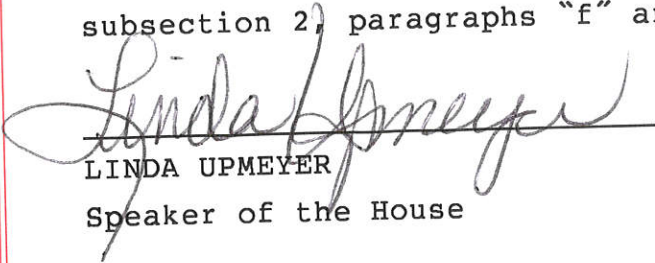 subsection 2, paragraphs “f” an
Linda Upmeyer
LINDA UPMEYER
Speaker of the House